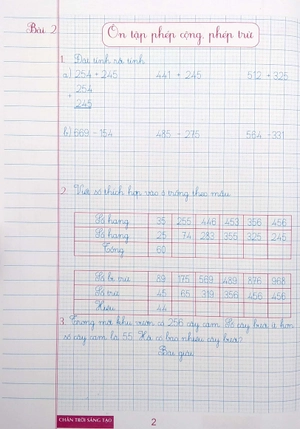 Bài 2
Ôn tập phép cộng, phép trừ
1. Đặt tính rồi tính
a) 254 + 245 441 + 245 512 + 325
+ 254
245
b) 669 - 154 485 - 275 564 + 331
2. Viết số thích hợp vào ô trống theo mẫu
Số hạng 35 255 446 453 356 456
Số hạng 25 74 283 355 325 245
Tổng 60
Số bị trừ 89 175 569 489 876 968
Số trừ 45 65 319 356 456 456
Hiệu 44
3. Trong một khu vườn có 256 cây cam. Số cây bưởi ít hơn
số cây cam là 55. Hỏi có bao nhiêu cây bưởi?
Bài giải
CHÂN TRỜI SÁNG TẠO
2